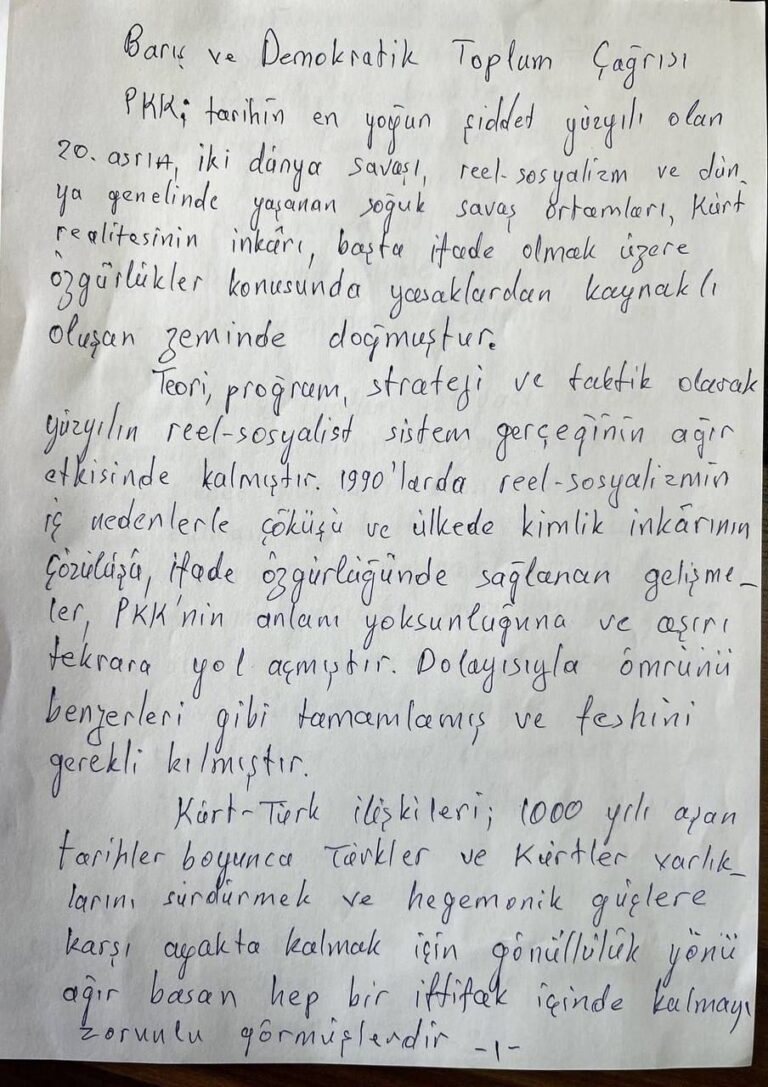 Barış ve Demokratik Toplum Çağrısı
PKK; tarihin en yoğun şiddet yüzyılı olan
20. asrın, iki dünya savaşı, reel-sosyalizm ve dün
ya genelinde yaşanan soğuk savaş ortamları, Kürt
realitesinin inkârı, başta ifade olmak üzere
özgürlükler konusunda yasaklardan kaynaklı
oluşan zeminde doğmuştur.
Teori, program, strateji ve taktik olarak
yüzyılın reel-sosyalist sistem gerçeğinin ağır
etkisinde kalmıştır. 1990'larda reel-sosyalizmin
iç nedenlerle çöküşü ve ülkede kimlik inkârının
çözülüşü, ifade özgürlüğünde sağlanan gelişme-
ler, PKK'nin anlam yoksunluğuna ve aşırı
tekrara yol açmıştır. Dolayısıyla ömrünü
benzerleri gibi tamamlamış ve feshini
gerekli kılmıştır.
Kürt-Türk ilişkileri; 1000 yılı aşan
tarihler boyunca Türkler ve Kürtler varlık-
larını sürdürmek ve hegemonik güçlere
karşı ayakta kalmak için gönüllülük yönü
ağır basan hep bir ittifak içinde kalmayı
zorunlu görmüşlerdir -1-